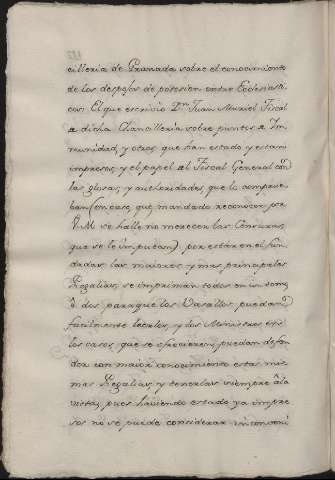 cilleria de Granada sobre el conocimiento
de los despojos de posesion entre Eclesiasti
cos: El que escrivio Dn. Juan Muriel Fiscal
de dicha Chancilleria sobre puntos de Im
munidad, y otros, que han estado y estan
impresos, y el papel del Fiscal General con
las glosas, y authoridades, que lo comprue
ban (en caso, que, mandado reconocer por
V.M. se halle no merecer las Censuras,
que se le imputan) por estar en el fun
dadas las maiores, y mas principales
Regalias, se impriman todos en un tomo,
ò dos para que los Vasallos puedan
facilmente leerlos, y los Ministros en
los casos, que se ofrecieren, puedan defen
der con maior conocimiento estas mis
mas Regalias, y tenerlas siempre à la
vista, pues haviendo estado ya impre
sos no se puede considerar inconveni